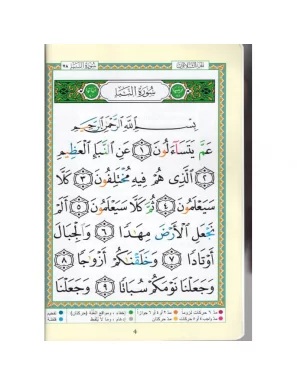 سُورَةُ النَّبَإِ
بِسْمِ اللَّهِ الرَّحْمَٰنِ الرَّحِيمِ
عَمَّ يَتَسَاءَلُونَ ١ عَنِ النَّبَإِ الْعَظِيمِ
٢ الَّذِي هُمْ فِيهِ مُخْتَلِفُونَ ٣ كَلَّا
سَيَعْلَمُونَ ٤ ثُمَّ كَلَّا سَيَعْلَمُونَ ٥ أَلَمْ
نَجْعَلِ الْأَرْضَ مِهَٰدًا ٦ وَالْجِبَالَ
أَوْتَادًا ٧ وَخَلَقْنَٰكُمْ أَزْوَٰجًا ٨
وَجَعَلْنَا نَوْمَكُمْ سُبَاتًا ٩ وَجَعَلْنَا
4